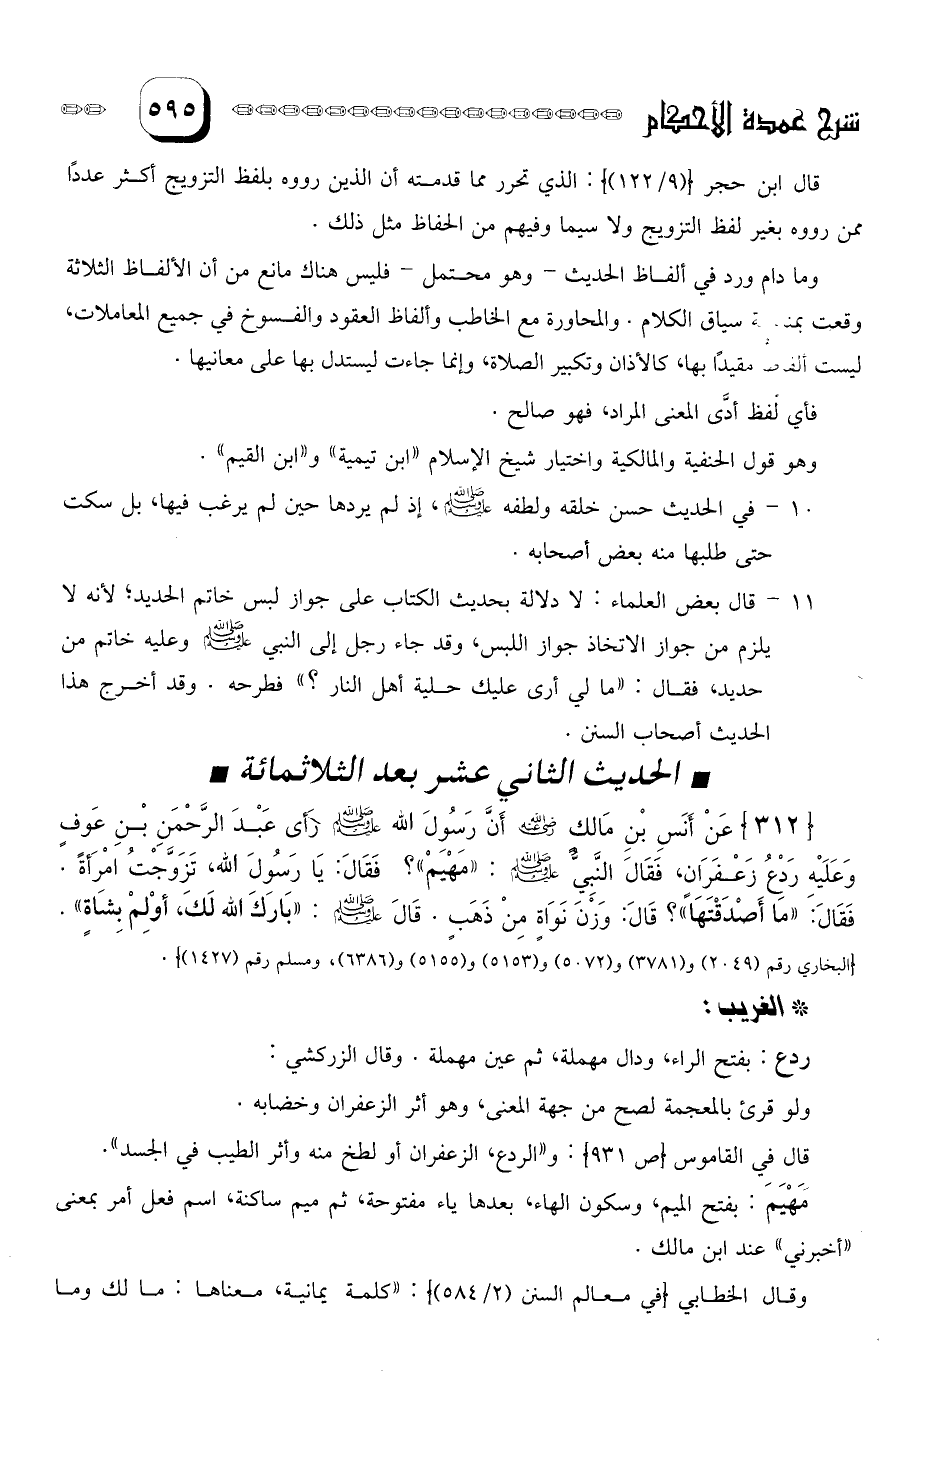 شرح عمدة الأحكام ٥٩٥
قال ابن حجر {(٩/ ١٢٢)} : الذي تحرر مما قدمته أن الذين رووه بلفظ التزويج أكثر عددًا
ممن رووه بغير لفظ التزويج ولا سيما وفيهم من الحفاظ مثل ذلك .
وما دام ورد في ألفاظ الحديث - وهو محتمل - فليس هناك مانع من أن الألفاظ الثلاثة
وقعت سياق الكلام . والمحاورة مع الخاطب وألفاظ العقود والفسوخ في جميع المعاملات،
ليست مقيدًا بها، كالأذان وتكبير الصلاة، وإنما جاءت ليستدل بها على معانيها .
فأي لفظ أدَّى المعنى المراد، فهو صالح .
وهو قول الحنفية والمالكية واختيار شيخ الإسلام «ابن تيمية» و«ابن القيم» .
١٠ - في الحديث حسن خلقه ولطفه ﷺ، إذ لم يردها حين لم يرغب فيها، بل سكت
حتى طلبها منه بعض أصحابه .
١١ - قال بعض العلماء : لا دلالة بحديث الكتاب على جواز لبس خاتم الحديد؛ لأنه لا
يلزم من جواز الاتخاذ جواز اللبس، وقد جاء رجل إلى النبي ﷺ وعليه خاتم من
حديد، فقال : «ما لي أرى عليك حلية أهل النار ؟» فطرحه . وقد أخرج هذا
الحديث أصحاب السنن .
■ الحديث الثاني عشر بعد الثلاثمائة ■
{٣١٢} عَنْ أَنَسِ بْنِ مَالك رضي الله عنه أَنَّ رَسُولَ الله ﷺ رَأى عَبْدَ الرَّحْمنِ بْنِ عَوفٍ
وَعَلَيْهِ رَدْعُ زَعْفَرَان، فَقَالَ النَّبِيُّ ﷺ : «مَهْيَمْ»؟ فَقَالَ: يَا رَسُولَ الله، تَزَوَّجْتُ امْرَأَةً .
فَقَالَ: «مَا أَصْدَقْتَهَا»؟ قَالَ: وَزْنَ نَوَاةٍ مِنْ ذَهَبٍ . قَالَ ﷺ : «بَارَكَ الله لَكَ، أَوْلِمْ بِشَاةٍ» .
{البخاري رقم (٢٠٤٩) و(٣٧٨١) و(٥٠٧٢) و(٥١٥٣) و(٥١٥٥) و(٦٣٨٦)، ومسلم رقم (١٤٢٧)} .
* الغريب :
ردع : بفتح الراء، ودال مهملة، ثم عين مهملة . وقال الزركشي :
ولو قرئ بالمعجمة لصح من جهة المعنى، وهو أثر الزعفران وخضابه .
قال في القاموس {ص ٩٣١} : و«الردع، الزعفران أو لطخ منه وأثر الطيب في الجسد».
مَهْيَمْ : بفتح الميم، وسكون الهاء، بعدها ياء مفتوحة، ثم ميم ساكنة، اسم فعل أمر بمعنى
«أخبرني» عند ابن مالك .
وقال الخطابي {في معالم السنن (٢/ ٥٨٤)} : «كلمة يمانية، معناها : ما لك وما